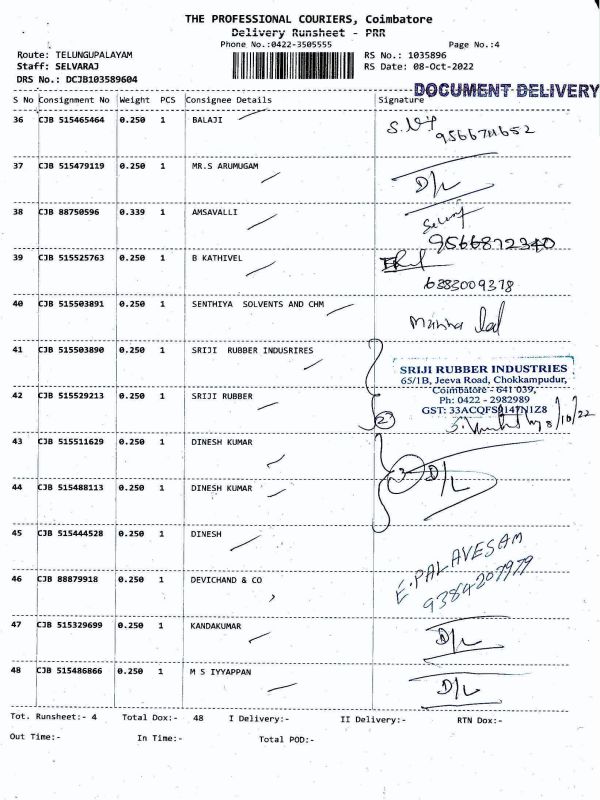 THE PROFESSIONAL COURIERS, Coimbatore
Delivery Runsheet - PRR
Phone No.:0422-3505555 Page No.:4
Route: TELUNGUPALAYAM RS No.: 1035896
Staff: SELVARAJ RS Date: 08-Oct-2022
DRS No.: DCJB103589604
DOCUMENT DELIVERY
S No Consignment No Weight PCS Consignee Details Signature
36 CJB 515465464 0.250 1 BALAJI
37 CJB 515479119 0.250 1 MR.S ARUMUGAM D/L
38 CJB 88750596 0.339 1 AMSAVALLI
9566872340
39 CJB 515525763 0.250 1 B KATHIVEL
6383009378
40 CJB 515503891 0.250 1 SENTHIYA SOLVENTS AND CHM
41 CJB 515503890 0.250 1 SRIJI RUBBER INDUSRIRES
SRIJI RUBBER INDUSTRIES
65/1B, Jeeva Road, Chokkampudur,
Coimbatore - 641 039,
Ph: 0422 - 2982989
42 CJB 515529213 0.250 1 SRIJI RUBBER
2 8/10/22
43 CJB 515511629 0.250 1 DINESH KUMAR
3 D/L
44 CJB 515488113 0.250 1 DINESH KUMAR
45 CJB 515444528 0.250 1 DINESH
46 CJB 88879918 0.250 1 DEVICHAND & CO E. PALAVESAM
9384207979
47 CJB 515329699 0.250 1 KANDAKUMAR D/L
48 CJB 515486866 0.250 1 M S IYYAPPAN D/L
Tot. Runsheet:- 4 Total Dox:- 48 I Delivery:- II Delivery:- RTN Dox:-
Out Time:- In Time:- Total POD:-